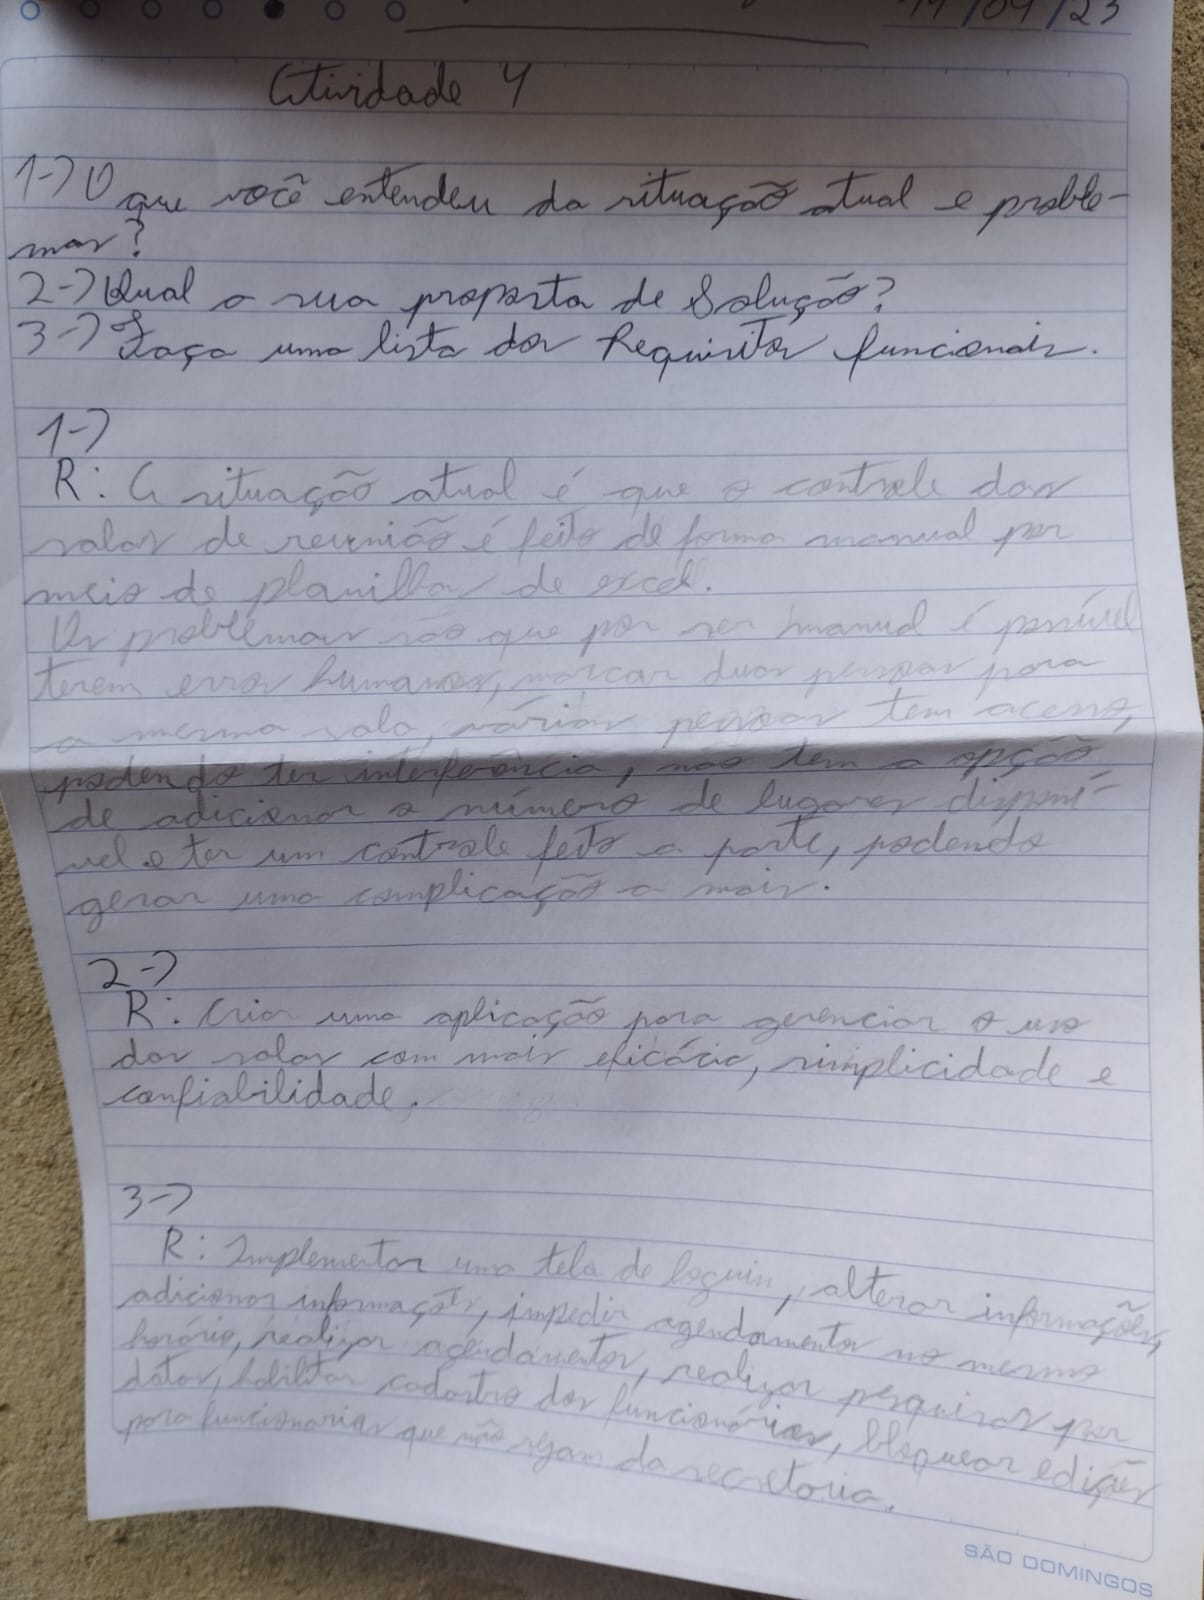 11/04/23
Atividade 4
1-> O que você entendeu da situação atual e proble-
mas?
2-> Qual a sua proposta de Solução?
3-> Faça uma lista dos Requisitos funcionais.
1->
R: A situação atual é que o controle das
salas de reunião é feito de forma manual por
meio de planilhas de excel.
Os problemas são que por ser manual é possível
terem erros humanos, marcar duas pessoas para
a mesma sala, várias pessoas tem acesso,
podendo ter interferência, não tem a opção
de adicionar o número de lugares disponí-
vel e ter um controle feito a parte, podendo
gerar uma complicação a mais.
2->
R: Criar uma aplicação para gerenciar o uso
das salas com mais eficácia, simplicidade e
confiabilidade.
3->
R: Implementar uma tela de loguin, alterar informações,
adicionar informações, impedir agendamentos no mesmo
horário, realizar agendamentos, realizar pesquisas por
datas, habilitar cadastro dos funcionários, bloquear edições
para funcionarios que não sejam da secretaria.
SÃO DOMINGOS